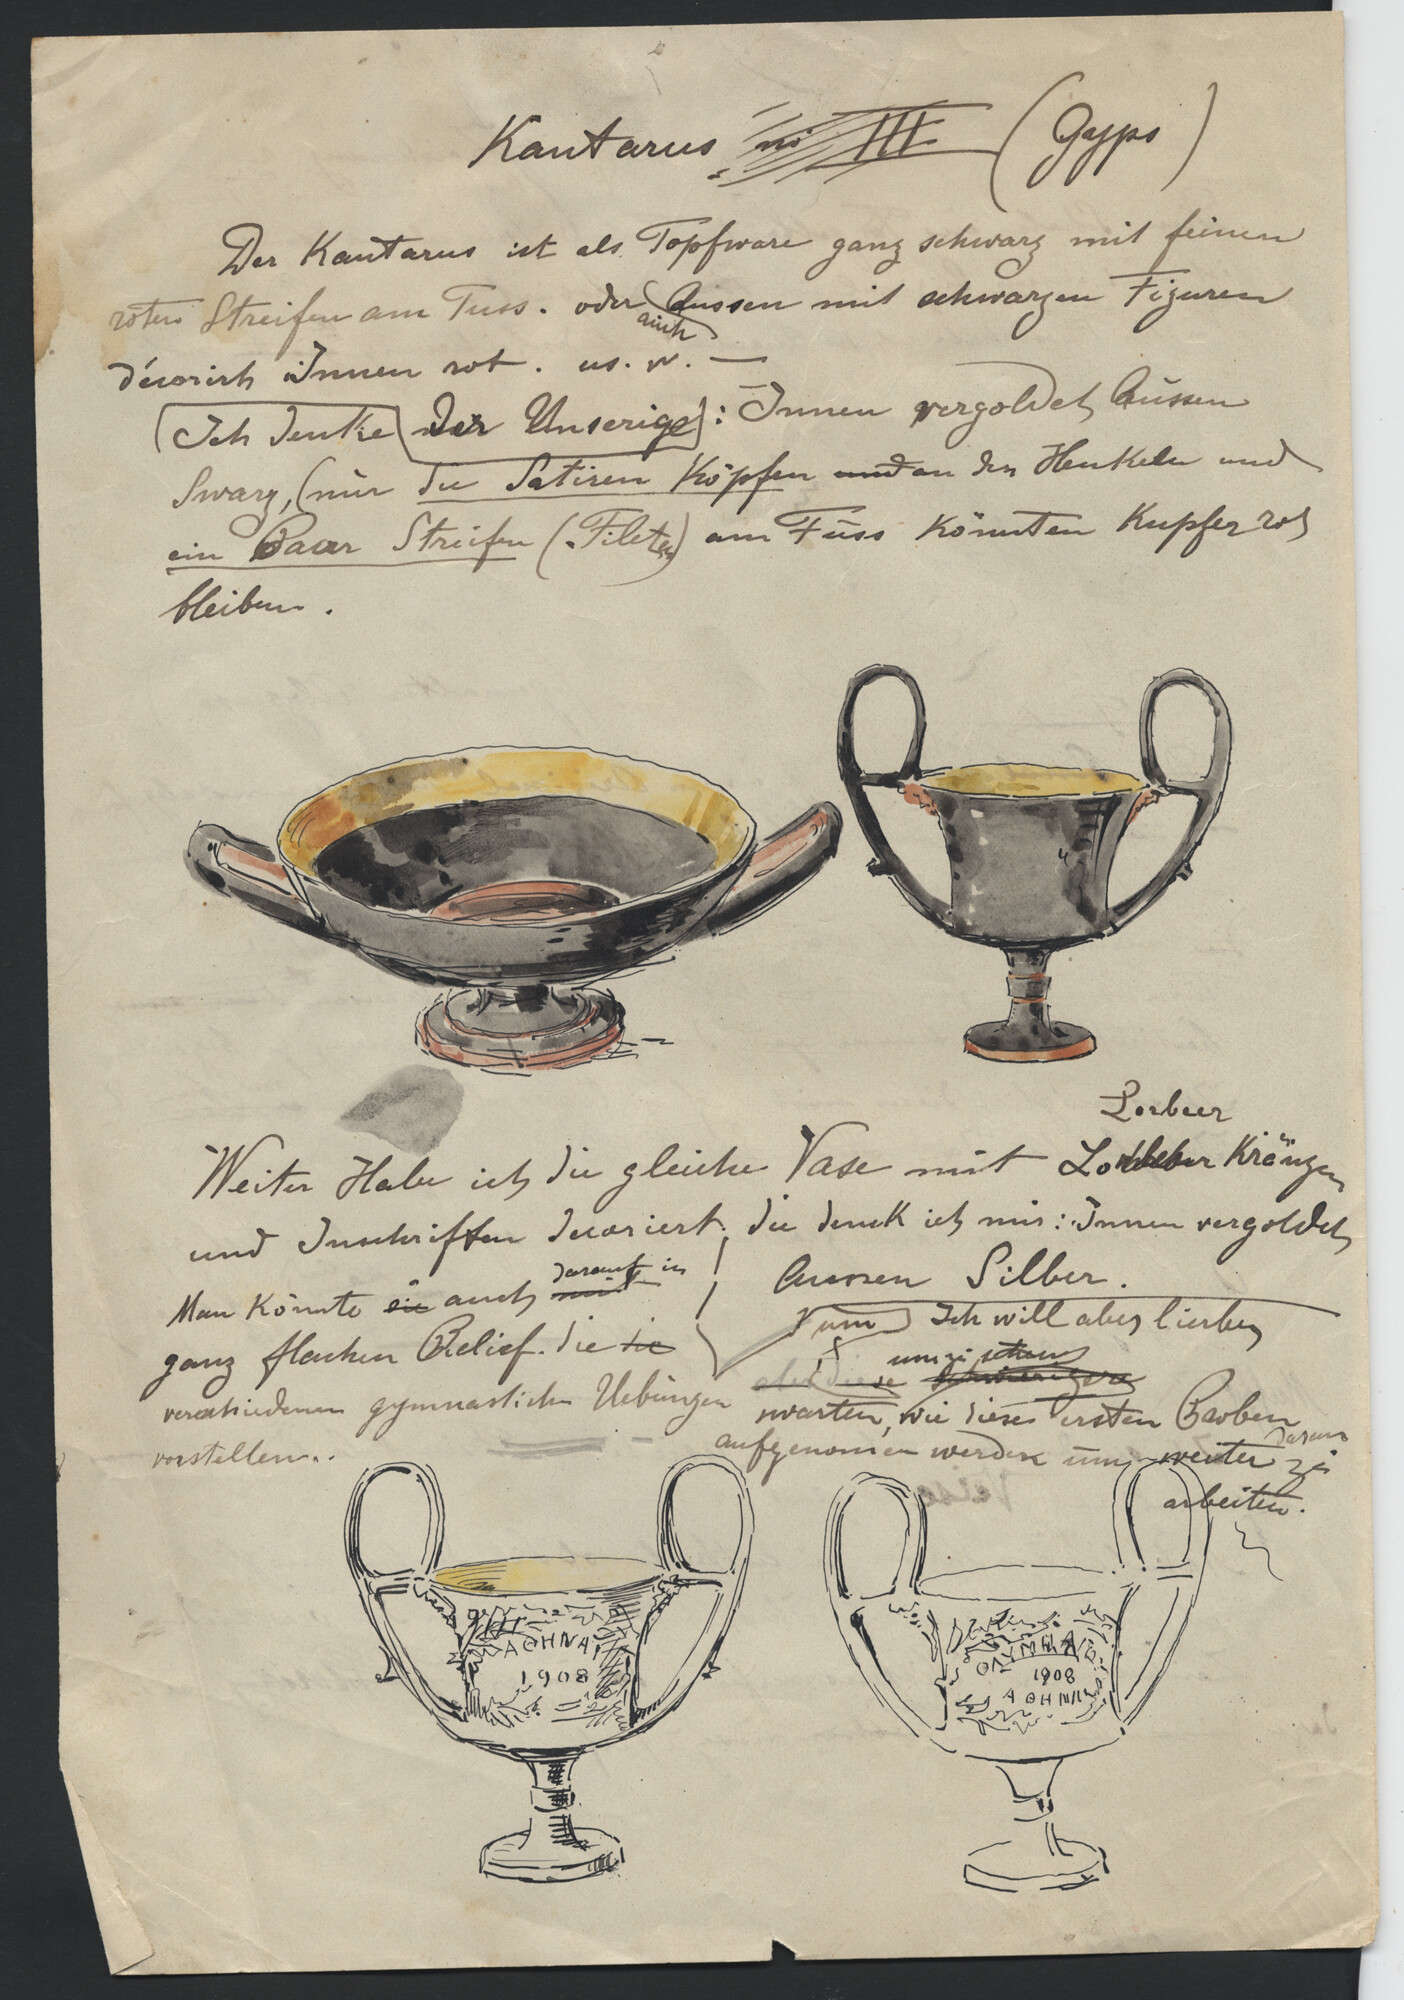 Kantarus no III (Gyps)
Der Kantarus ist als Topfware ganz schwarz mit feinen
roten Streifen am Fuss. oder auch Aussen mit schwarzen Figuren
décorirt Innen rot. us. w. —
Ich denke der Unserige: Innen vergoldet Aüssen
Swarz, (nür die Satiren Köpfen und an den Henkeln und
ein Paar Streifen (Fileten) am Füss könnten Kupfer rot
bleiben.
Lorbeer
Weiter Habe ich die gleiche Vase mit Kränzen
und Inschriften decoriert, die denck ich mir: Innen vergoldet
Aussen Silber.
Man könnte sie auch mit darauf in
ganz flachen Relief. die die
verschiedenen gymnastischen Uebüngen
vorstellen..
um Ich will aber lieber
aber diese
warten, wie diese ersten Proben
aufgenomen werden um weiter daran zü
arbeiten.
ΑΘΗΝΑΙ
1908
ΟΛΥΜΠΙΑ
1908
ΑΘΗΝΑΙ